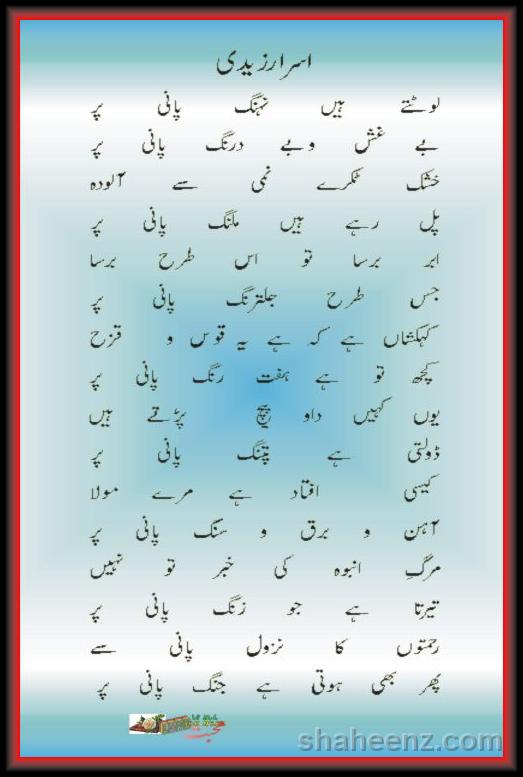 اسرار زیدی
لوٹتے ہیں نہنگ پانی پر
بے غش و بے درنگ پانی پر
خشک ٹکرے نمی سے آلودہ
پل رہے ہیں ملنگ پانی پر
ابر برسا تو اس طرح برسا
جس طرح جلترنگ پانی پر
کہکشاں ہے کہ ہے یہ قوس و قزح
کچھ تو ہے ہفت رنگ پانی پر
یوں کہیں داو پیچ پڑتے ہیں
ڈولتی ہے پتنگ پانی پر
کیسی افتاد ہے مرے مولا
آہن و برق و سنگ پانی پر
مرگِ انبوہ کی خبر تو نہیں
تیرتا ہے جو زنگ پانی پر
رحمتوں کا نزول پانی سے
پھر بھی ہوتی ہے جنگ پانی پر
محبت
shaheenz.com